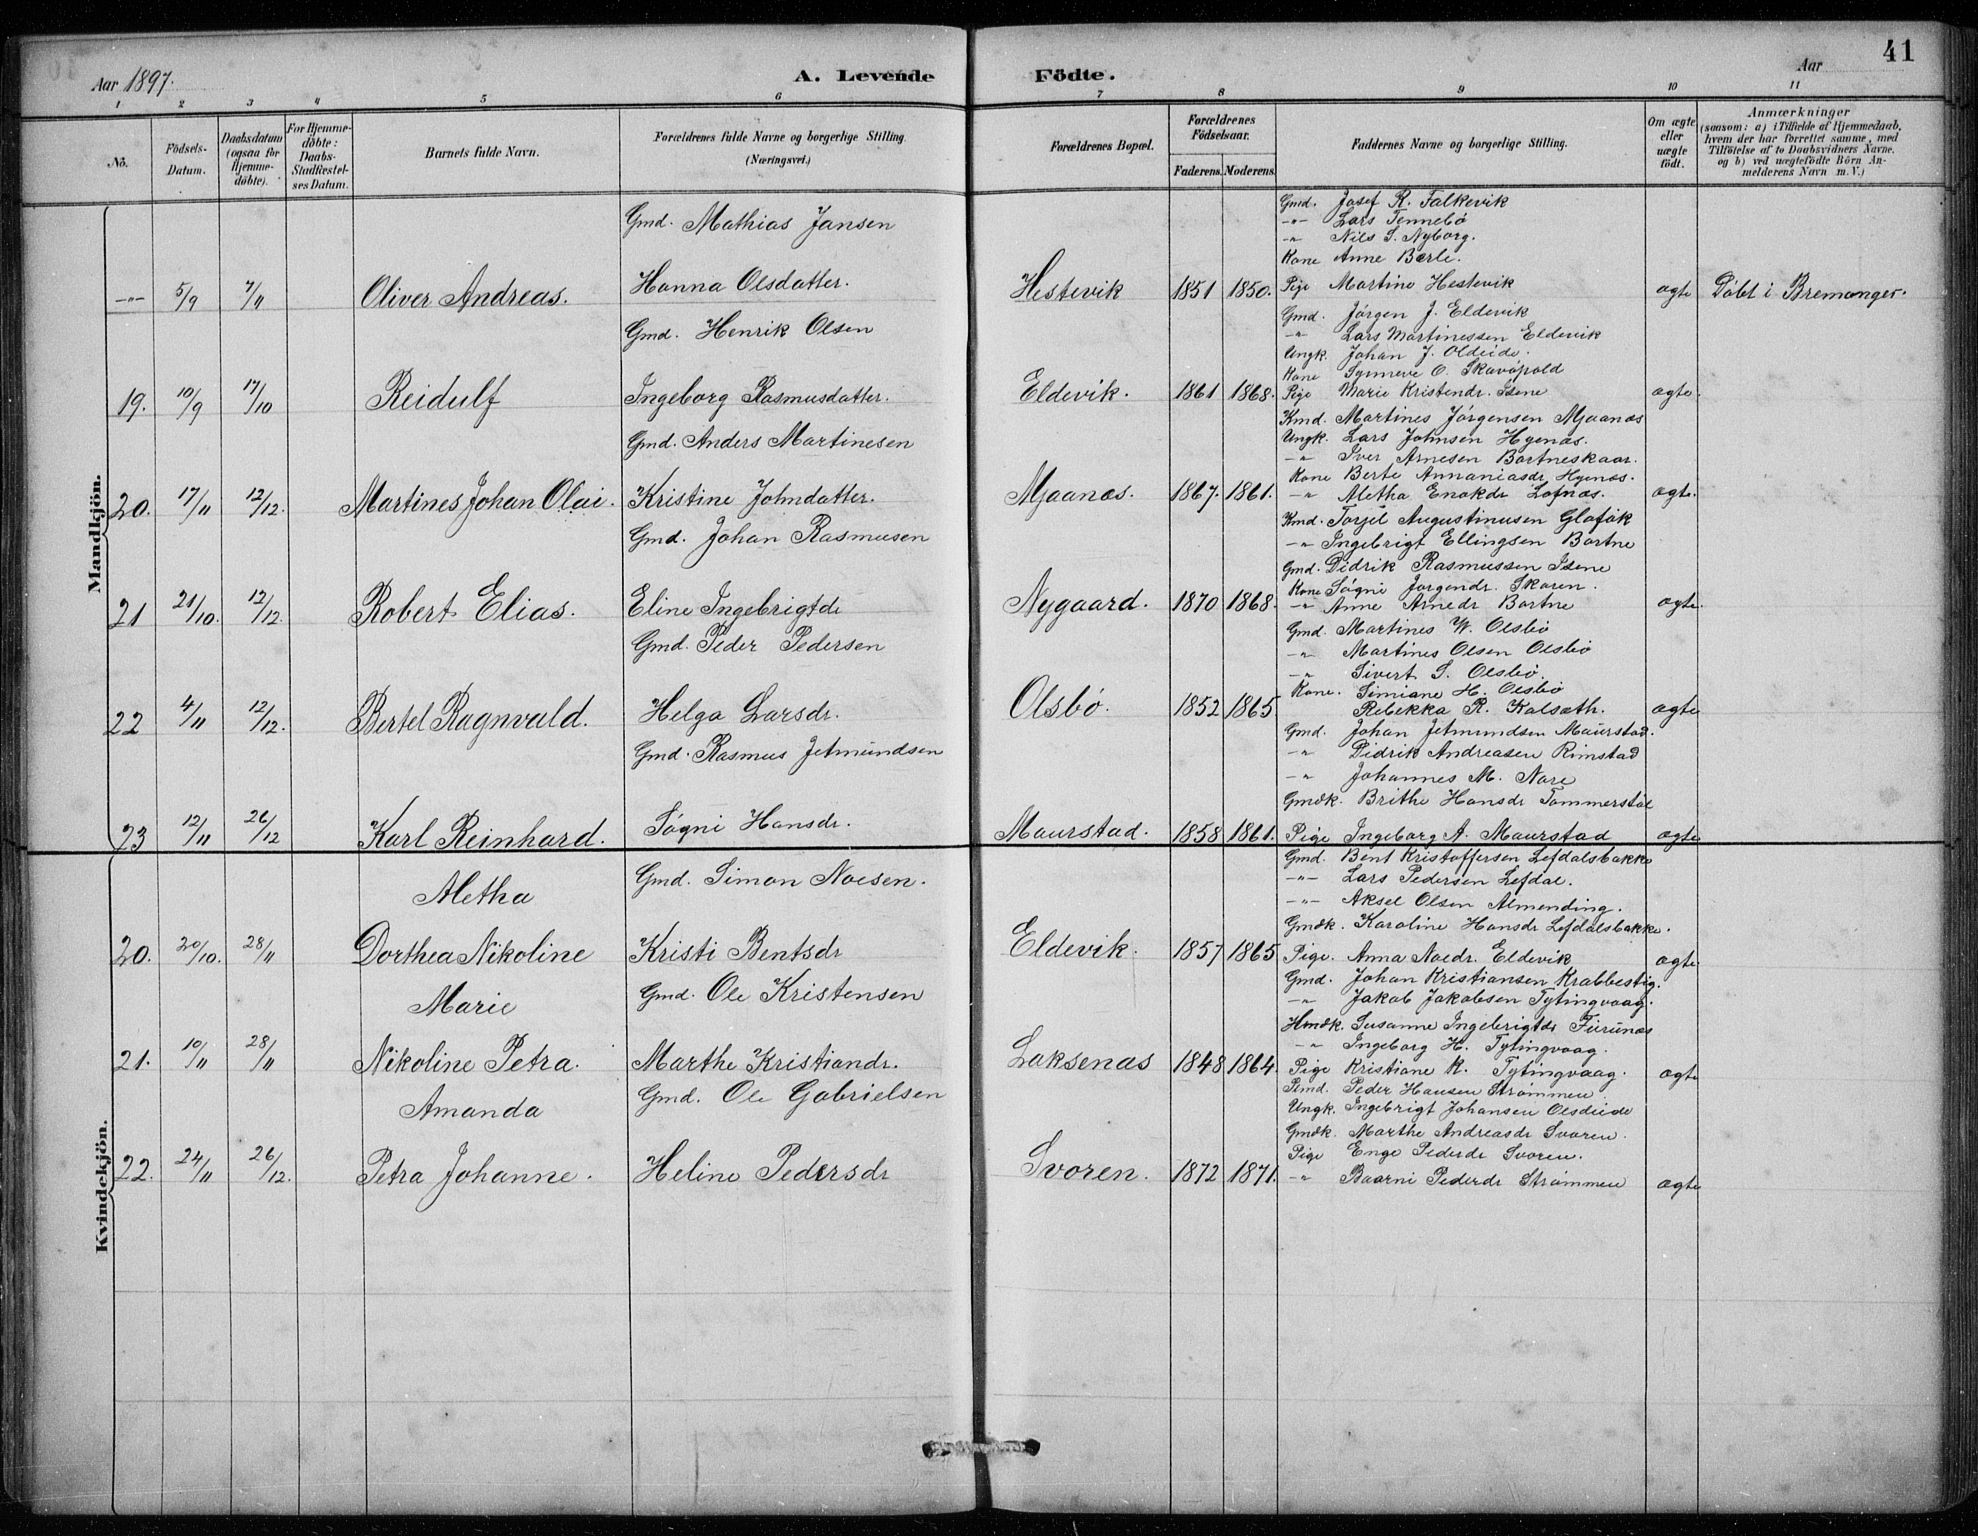 Aar 1897.
A. Levende Födte.
Aar
41
1 2 3 4 5 6 7 8 9 10 11
No.
Födsels-Datum.
Daabsdatum (ogsaa for Hjemme-döbte).
For Hjemme-döbte: Daabs-Stadfæstel-ses Datum.
Barnets fulde Navn.
Forældrenes fulde Navne og borgerlige Stilling. (Næringsvei.)
Forældrenes Bopæl.
Forældrenes Födselsaar.
Faderens. Moderens.
Faddernes Navne og borgerlige Stilling.
Om ægte eller uægte födt.
Anmærkninger (saasom: a) i Tilfælde af Hjemmedaab, hvem der har forrettet samme, med Tilföielse af to Daabsvidners Navne, og b) ved uægtefödte Börn An-melderens Navn m. V.)
Mandkjön.
Gmd. Mathias Jansen
Gmd. Josef R. Falkevik
-"- Lars Tennebø
-"- Nils S. Nyborg.
Kone Anne Berle.
-"- 5/9 7/11 Oliver Andreas. Hanna Olsdatter. Hestevik 1851 1850. Pige Martine Hestevik ægte Döbt i Bremanger.
Gmd. Henrik Olsen
Gmd. Jörgen J. Eldevik
-"- Lars Martinessen Eldevik
Ungk. Johan J. Oldeide.
Kone Synneve O. Skavöpold
19. 10/9 17/10 Reidulf Ingeborg Rasmusdatter. Eldevik. 1861 1868. Pige Marie Kristendr. Isene ægte.
Gmd. Anders Martinesen
Kmd. Martines Jörgensen Mjaanæs
Ungk. Lars Johnsen Hyenæs.
-"- Iver Arnesen Bortneskaar.
Kone Berte Annaniasdr Hyenæs.
20. 17/11 12/12. Martines Johan Olai. Kristine Johndatter. Mjaanæs. 1867. 1861. -"- Aletha Enokdr Lofnæs. ægte.
Gmd. Johan Rasmusen
Kmd. Torjel Augustinusen Glofök
-"- Ingebrigt Ellingsen Bortne
Gmd. Didrik Rasmussen Isene
Kone Sögni Jorgendr. Skaren.
21 21/10. 12/12. Robert Elias. Eline Ingebrigtdr Nygaard. 1870 1868. -"- Anne Arnedr Bortne ægte.
Gmd. Peder Pedersen
Gmd. Martines W. Olsbö
-"- Martines Olsen Olsbö
-"- Sivert S. Olsbö.
Kone. Simiane H. Olsbö
22 4/11 12/12. Bertel Ragnvald. Helga Larsdr. Olsbö. 1852 1865. Rebekka R. Kalsæth. ægte
Gmd. Rasmus Jetmundsen
Gmd. Johan Jetmundsen Maurstad.
-"- Didrik Andreasen Rimstad
-"- Johannes M. Nore
Gmdk. Brithe Hansdr Tommerstöl
23 12/11 26/12 Karl Reinhard. Sögni Hansdr. Maurstad. 1858 1861. Pige Ingeborg A. Maurstad ægte
Kvindekjön.
Aletha
Gmd. Simon Noesen.
Gmd. Bent Kristoffersen Lefdalsbakke
-"- Lars Pedersen Lefdal.
-"- Aksel Olsen Almending.
Gmdk. Karoline Hansdr Lefdalsbakke.
20. 20/10. 28/11 Dorthea Nikoline Kristi Bentsdr Eldevik. 1857 1865 Pige. Anna Noedr. Eldevik ægte
Marie
Gmd. Ole Kristensen
Gmd. Johan Kristiansen Krabbestig.
-"- Jakob Jakobsen Tytingvaag.
Hmdk. Susanne Ingebrigtdr Furunæs
-"- Ingeborg H. Tytingvaag.
21. 10/11 28/11 Nikoline Petra. Marthe Kristiandr. Laksenæs 1848 1864. Pige Kristiane K. Tytingvaag. ægte
Amanda
Gmd. Ole Gabrielsen
Kmd. Peder Hansen Strømmen
Ungk. Ingebrigt Johansen Olsdeide
Gmdk. Marthe Andreasdr Svoren.
Pige Enge Pederdr Svoren.
22. 24/11 26/12. Petra Johanne. Heline Pedersdr Svoren. 1872 1871. -"- Baarni Pederdr Strømmen ægte